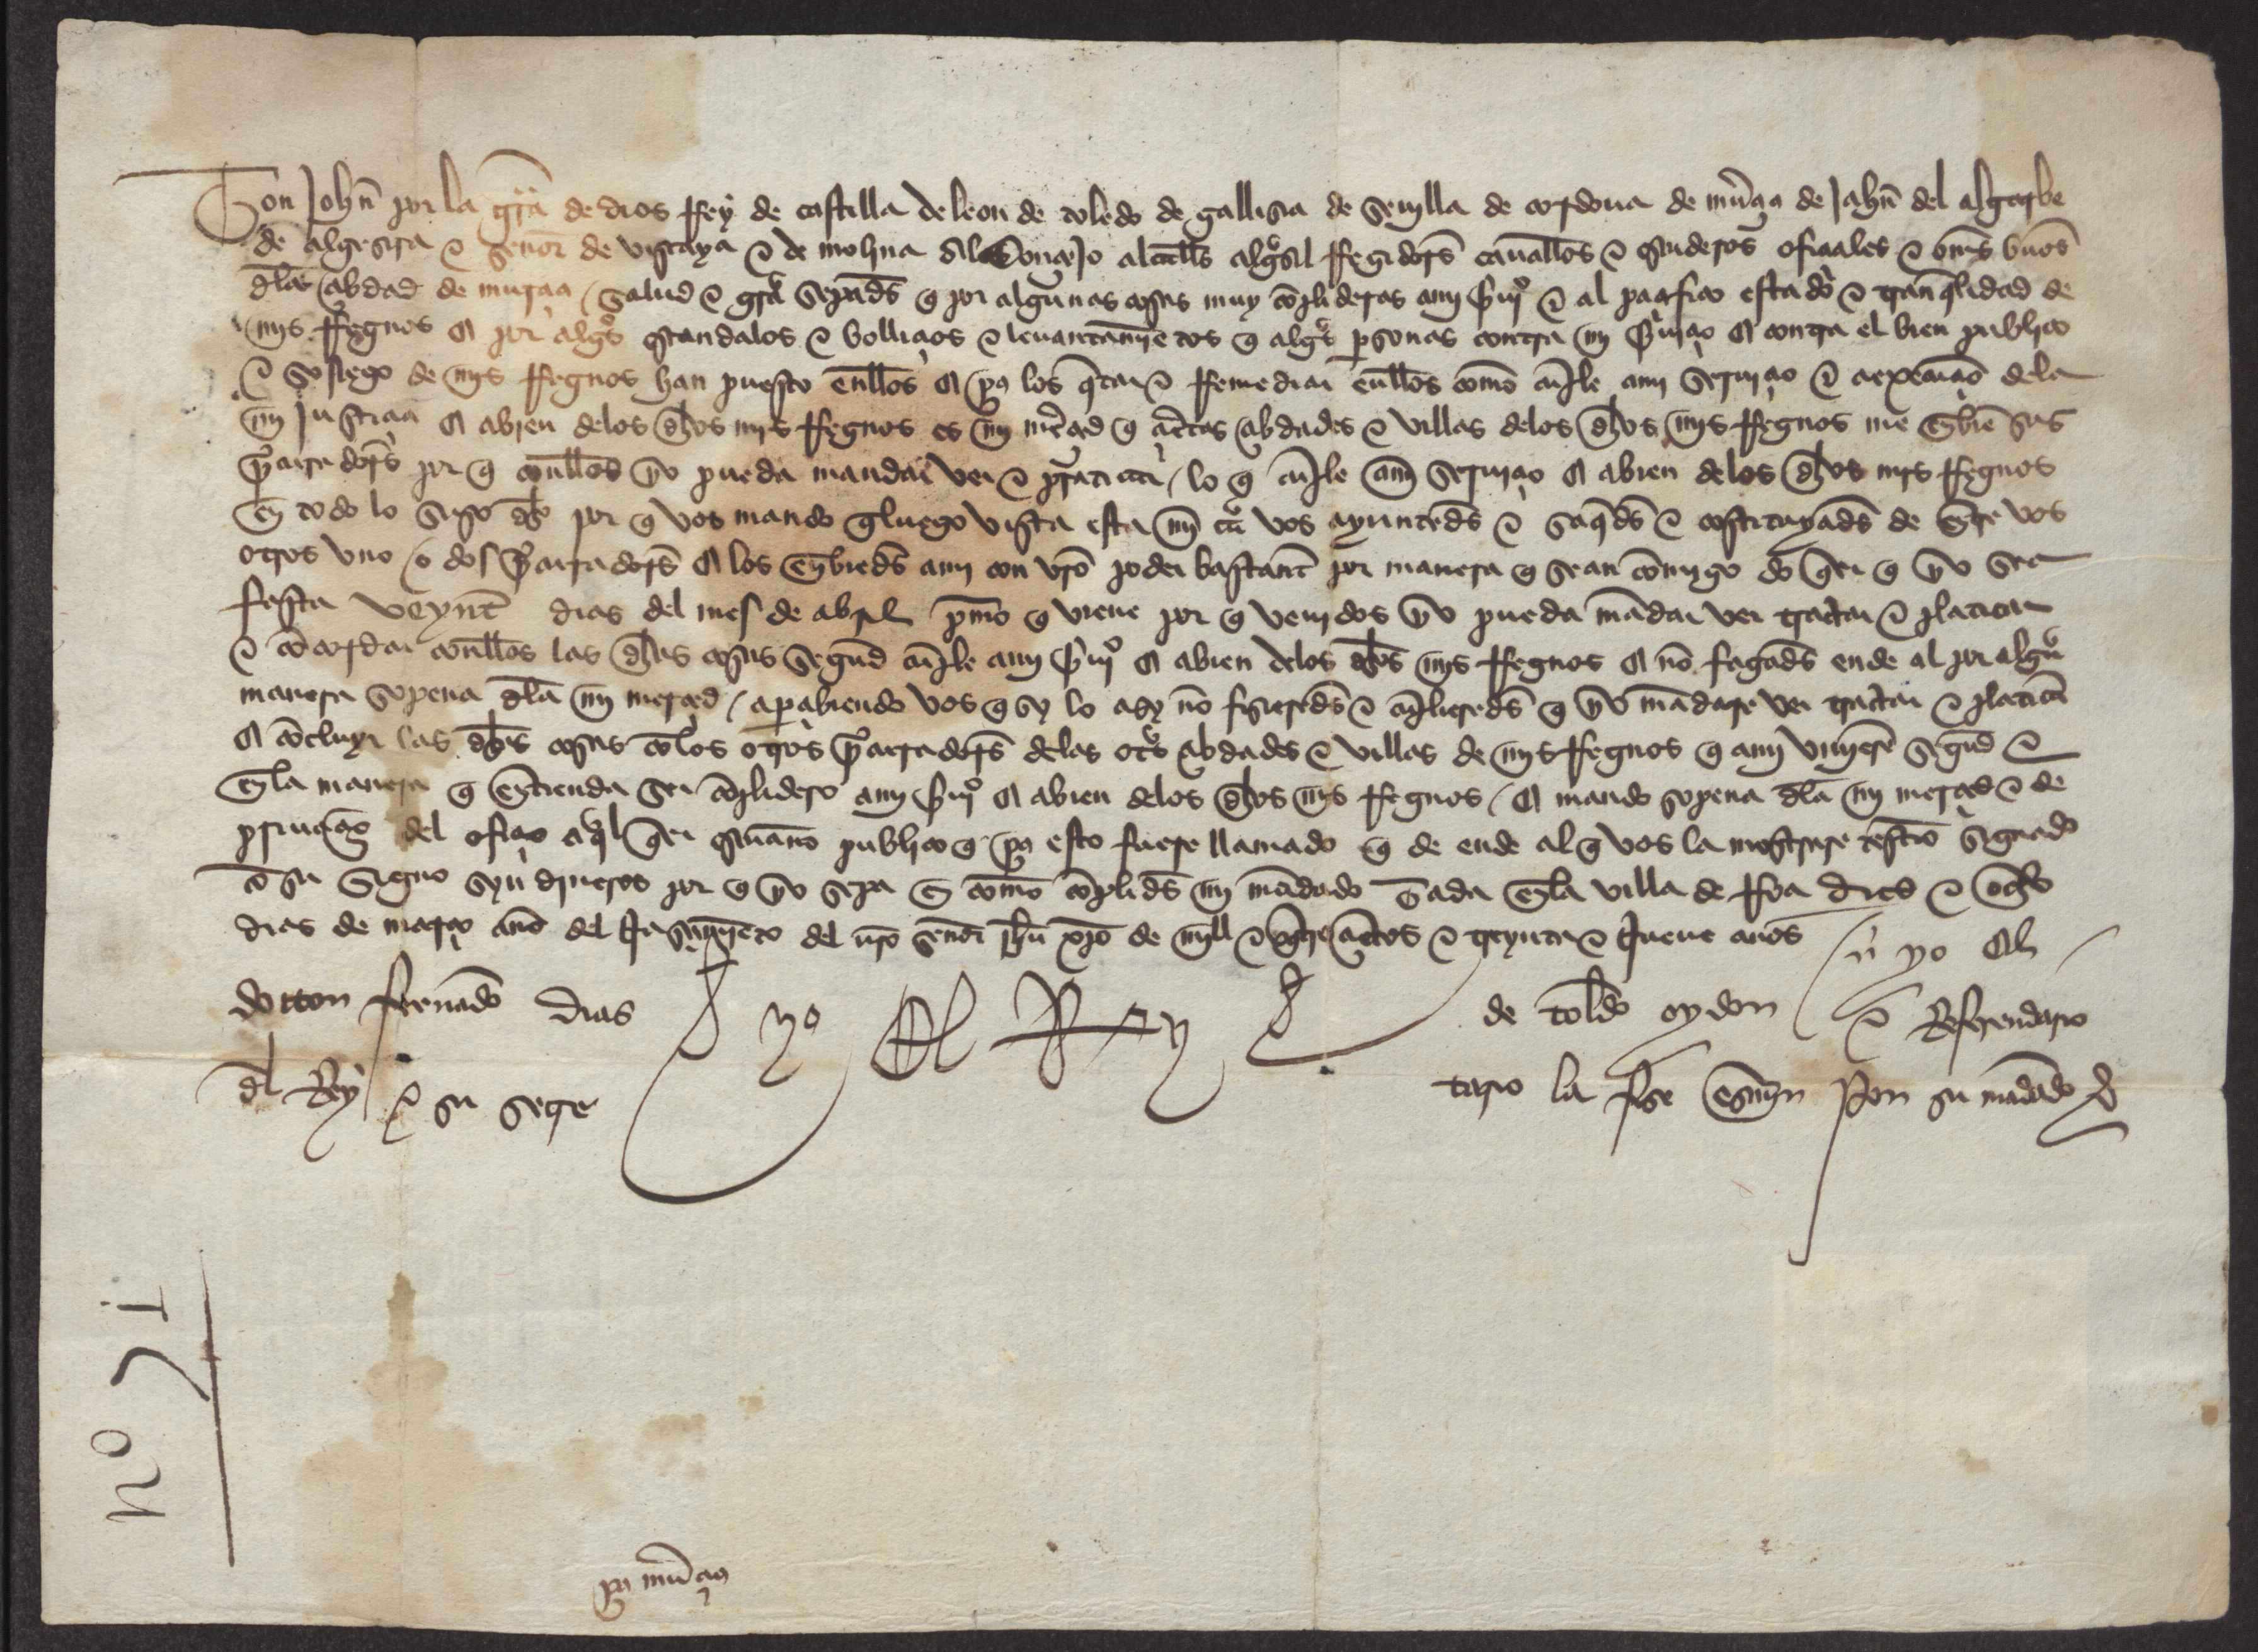 Don Johñ por la grã de dios Rey de castilla de leon de toledo de gallisia de seuilla de cordoua de murçia de Jahñ del algarbe
de algesira e señor de viscaya e de molina Al Conçejo alcalls alguasil Regidors caualleros e escuderos ofiçiales e oms buenos
dla çibdad de murçia salud e grã sepads q por algunas cosas muy conplideras a mi seruiº e al paçifico estado e tranqlidad de
mis Regnos E por algºs escandalos e bolliçios e leuantamietos q algªs personas contra mi seruiçio E contra el bien publico
e sosiego de mis Regnos han puesto enllos E pa los qtar e Remediar enllos como cunple a mi seruiçio e a execuçio dela
mi Justiçia E a bien delos dhos mis Regnos es mi merçed q çiertas çibdades e villas delos dhos mis Regnos me enbie sus
procuradors por q conllos yo pueda mandar ver e praticar lo q cunple a mi seruiçio E a bien de los dhos mis Regnos
en todo lo suso dho por q vos mando q luego vista esta mi cª vos ayunteds e saqds e costituyads de entre vos
otros vno o dos procuradors E los enbieds a mi con vro poder bastant por manera q sean comigo do qer q yo sea
fasta veynt dias del mes de abril pmo q viene por q venidos yo pueda mãdar ver tractar e platicar
e cõcordar conllos las dhas cosas segund cunple a mi seruiº E a bien delos dhos mis Regnos E nõ fagads ende al por algª
manera so pena dla mi merçed aperçibiendo vos q sy lo asy nõ fisiereds e cunplieredes q yo mãdare ver tractar e platicar
E cõcluyr las dhas cosas cõ los otros procuradors delas otªs çibdades e villas de mis Regnos q a mi vinieren segund e
en la manera q entienda ser cõplidero a mi seruiº E a bien delos dhos mis Regnos E mando so pena dla mi merçed e de
priuaçõ del ofiçio a qlqer escriuano publico q pa esto fuere llamado q de ende al q vos la mostrare testio signado
cõ su signo syn dineros por q yo sepa en como cõplids mi mãdado Dada en la villa de Roa dies e ocho
dias de março año del Nasçimieto del nro señor ihu xpo de mill e quatroçietos e treynta e Nueue años yo El
doctor fernãdo dias de toldo oydor e Referendario
dl Rey e su secre tario la fise escriuir por su mãdado
yo El Rey
pª murçia
no 51